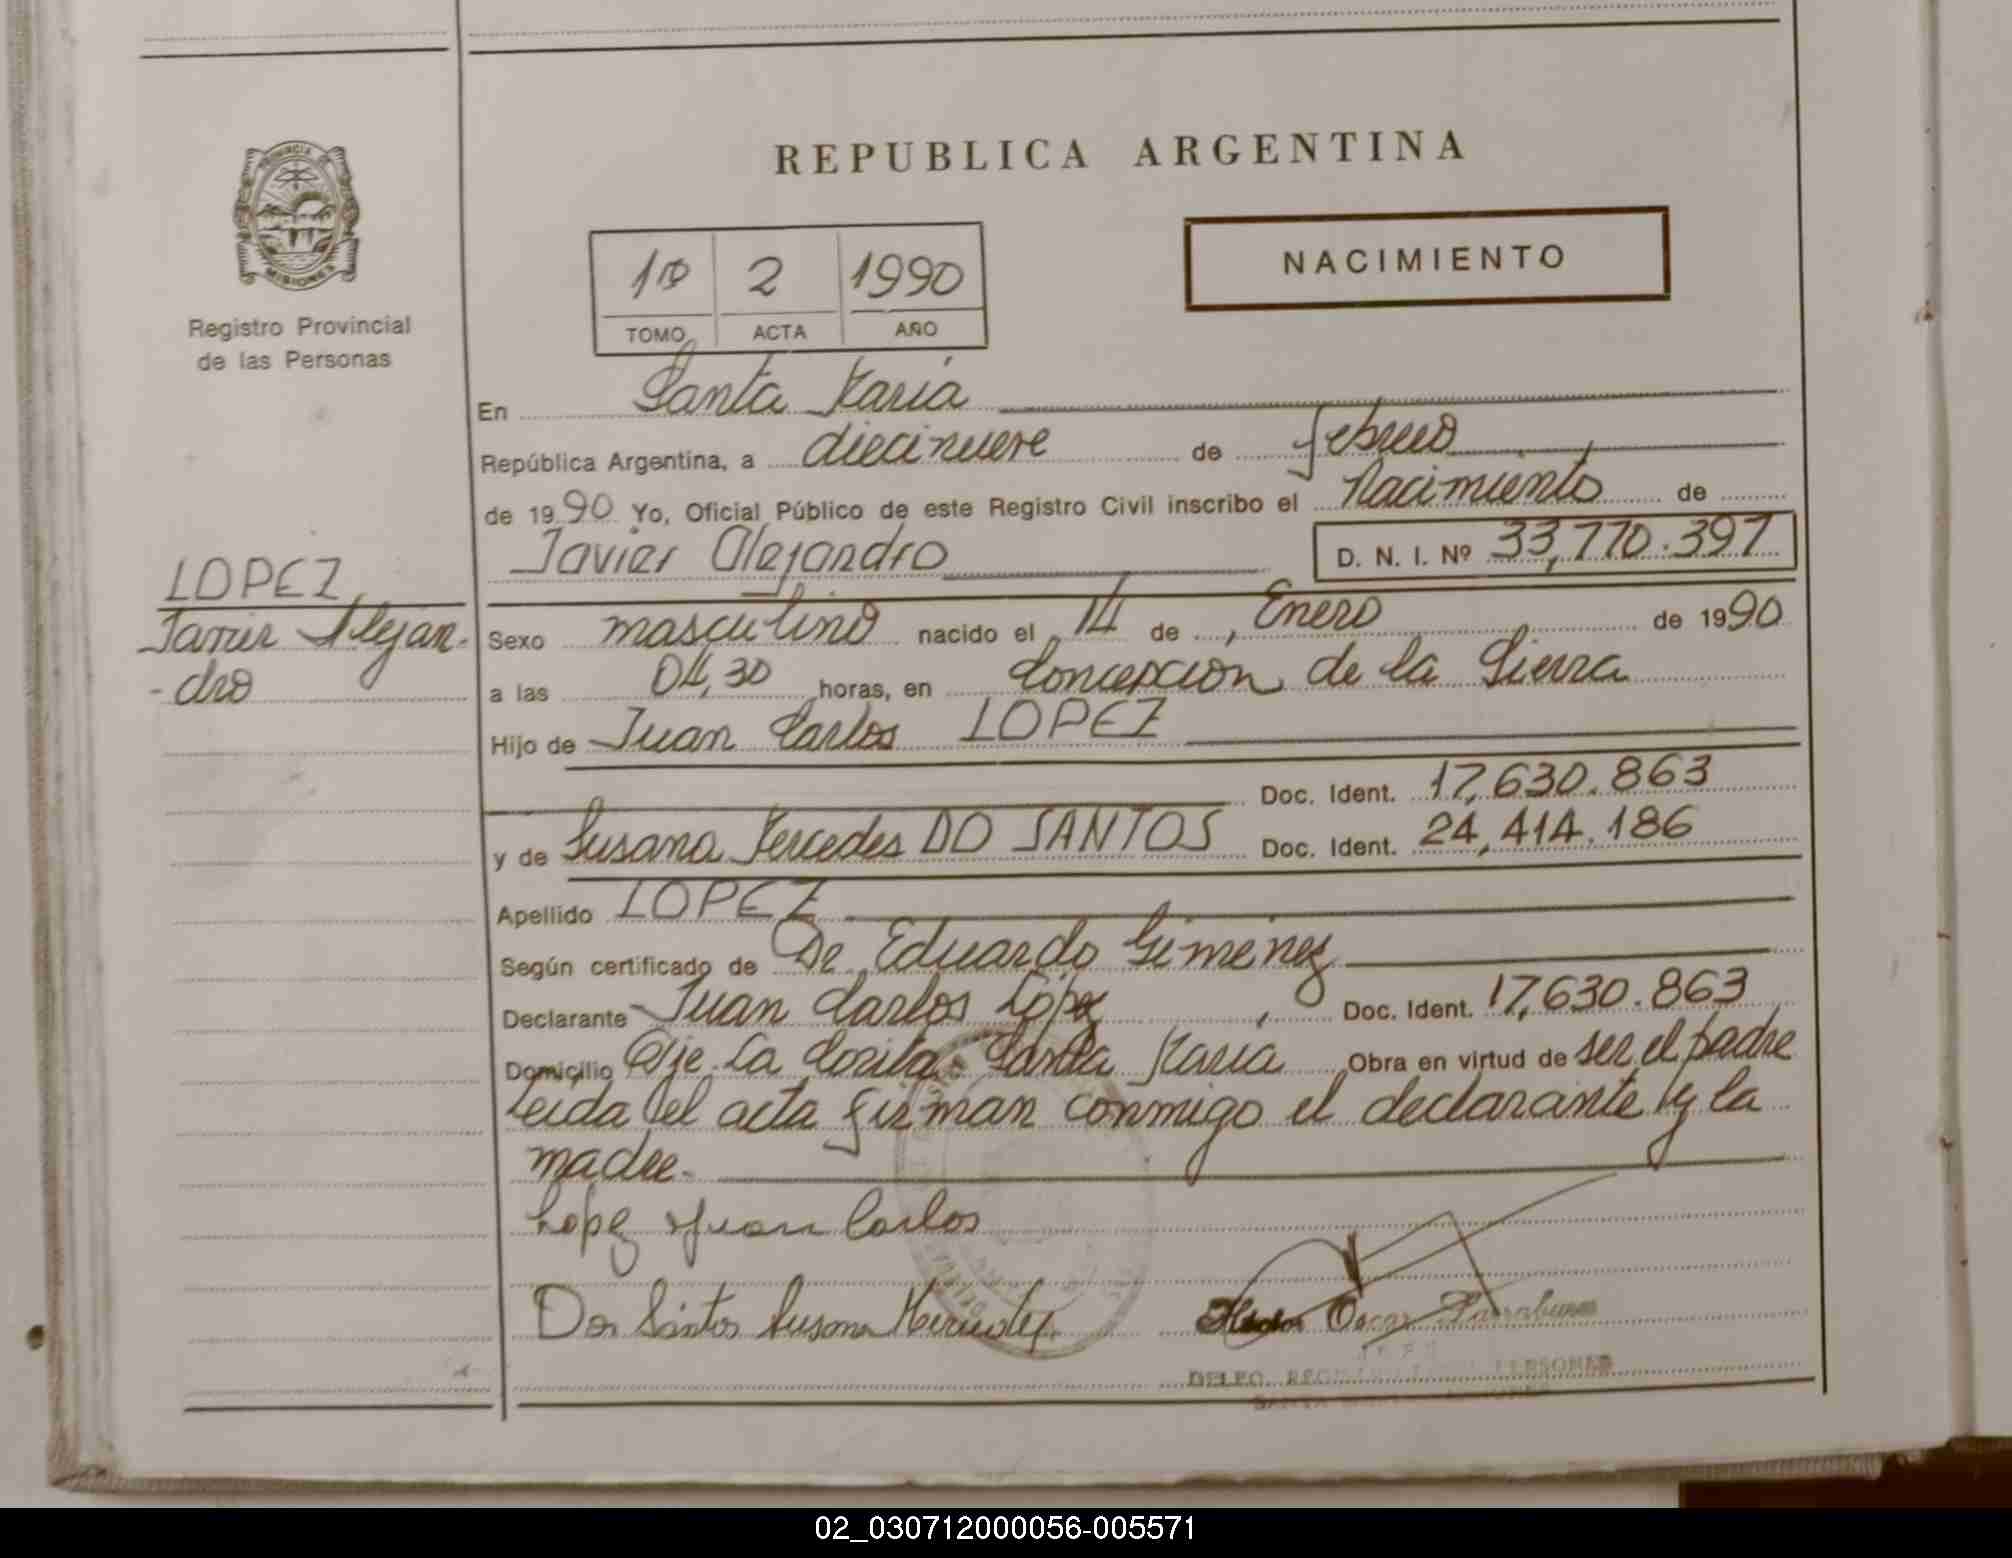 REPUBLICA ARGENTINA
PROVINCIA DE
MISIONES
Registro Provincial
de las Personas
1º 2 1990
TOMO ACTA AÑO
NACIMIENTO
En Santa María
República Argentina, a diecinueve de febrero
de 1990 Yo, Oficial Público de este Registro Civil inscribo el Nacimiento de
Javier Alejandro D. N. I. Nº 33,770.397
LOPEZ
Javier Alejan-
-dro
Sexo masculino nacido el 14 de , Enero de 1990
a las 04,30 horas, en Concepcion de la Sierra
Hijo de Juan Carlos LOPEZ
Doc. Ident. 17,630.863
y de Susana Mercedes DO SANTOS Doc. Ident. 24,414.186
Apellido LOPEZ
Según certificado de Dr Eduardo Gimenez
Declarante Juan Carlos López, Doc. Ident. 17,630.863
Domicilio Pje La Santa María Obra en virtud de ser el padre
Leida el acta firman conmigo el declarante y la
madre.
Lopez Juan Carlos
Dos Santos Susana Mercedes
Hector Oscar
DELEG. PERSONAS
SANTA
02_030712000056-005571